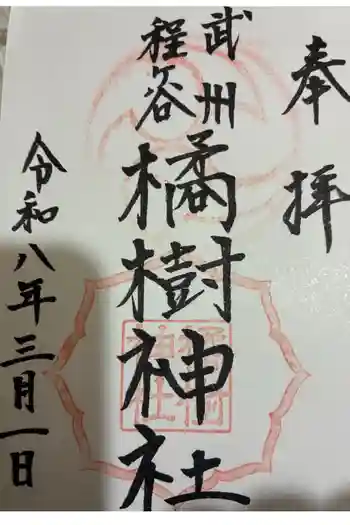 奉拝
武州
程ヶ谷
橘樹神社
令和八年三月一日
橘樹
神社